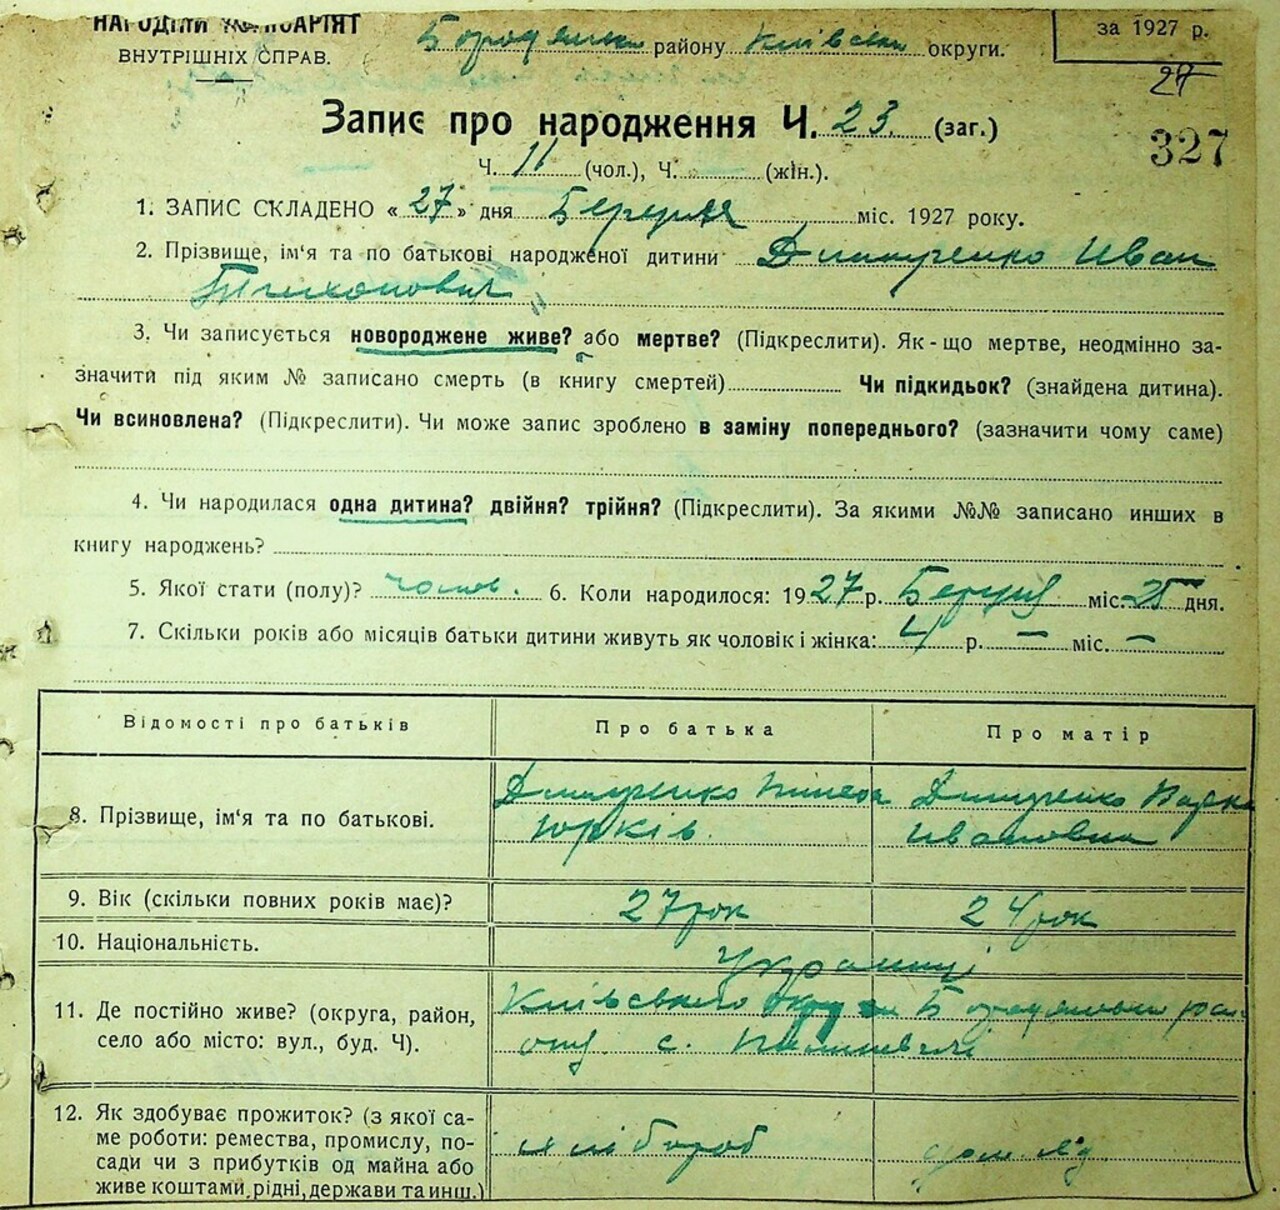 НАРОДНІЙ КОМІСАРІЯТ
ВНУТРІШНІХ СПРАВ.
Бородянськ району Київськ округи.
за 1927 р.
27
Запис про народження Ч. 23. (заг.)
327
Ч. 11 (чол.), Ч. (жін.).
1. ЗАПИС СКЛАДЕНО « 27 » дня Березня міс. 1927 року.
2. Прізвище, ім'я та по батькові народженої дитини Дмитренко Иван
Тихонович
3. Чи записується новороджене живе? або мертве? (Підкреслити). Як-що мертве, неодмінно за-
значити під яким № записано смерть (в книгу смертей) Чи підкидьок? (знайдена дитина).
Чи всиновлена? (Підкреслити). Чи може запис зроблено в заміну попереднього? (зазначити чому саме)
4. Чи народилася одна дитина? двійня? трійня? (Підкреслити). За якими №№ записано инших в
книгу народжень?
5. Якої стати (полу)? чолов. 6. Коли народилося: 1927 р. Березня міс. 25 дня.
7. Скільки років або місяців батьки дитини живуть як чоловік і жінка: 4 р. — міс. —
Відомості про батьків Про батька Про матір
8. Прізвище, ім'я та по батькові. Дмитренко Дмитренко
Юрків Ивановна
9. Вік (скільки повних років має)? 27 рок 24 рок
10. Національність. Українці
11. Де постійно живе? (округа, район,
село або місто: вул., буд. Ч). Київського округи Бородянського
с.
12. Як здобуває прожиток? (з якої са-
ме роботи: ремества, промислу, по-
сади чи з прибутків од майна або
живе коштами рідні, держави та инш.) хлібороб